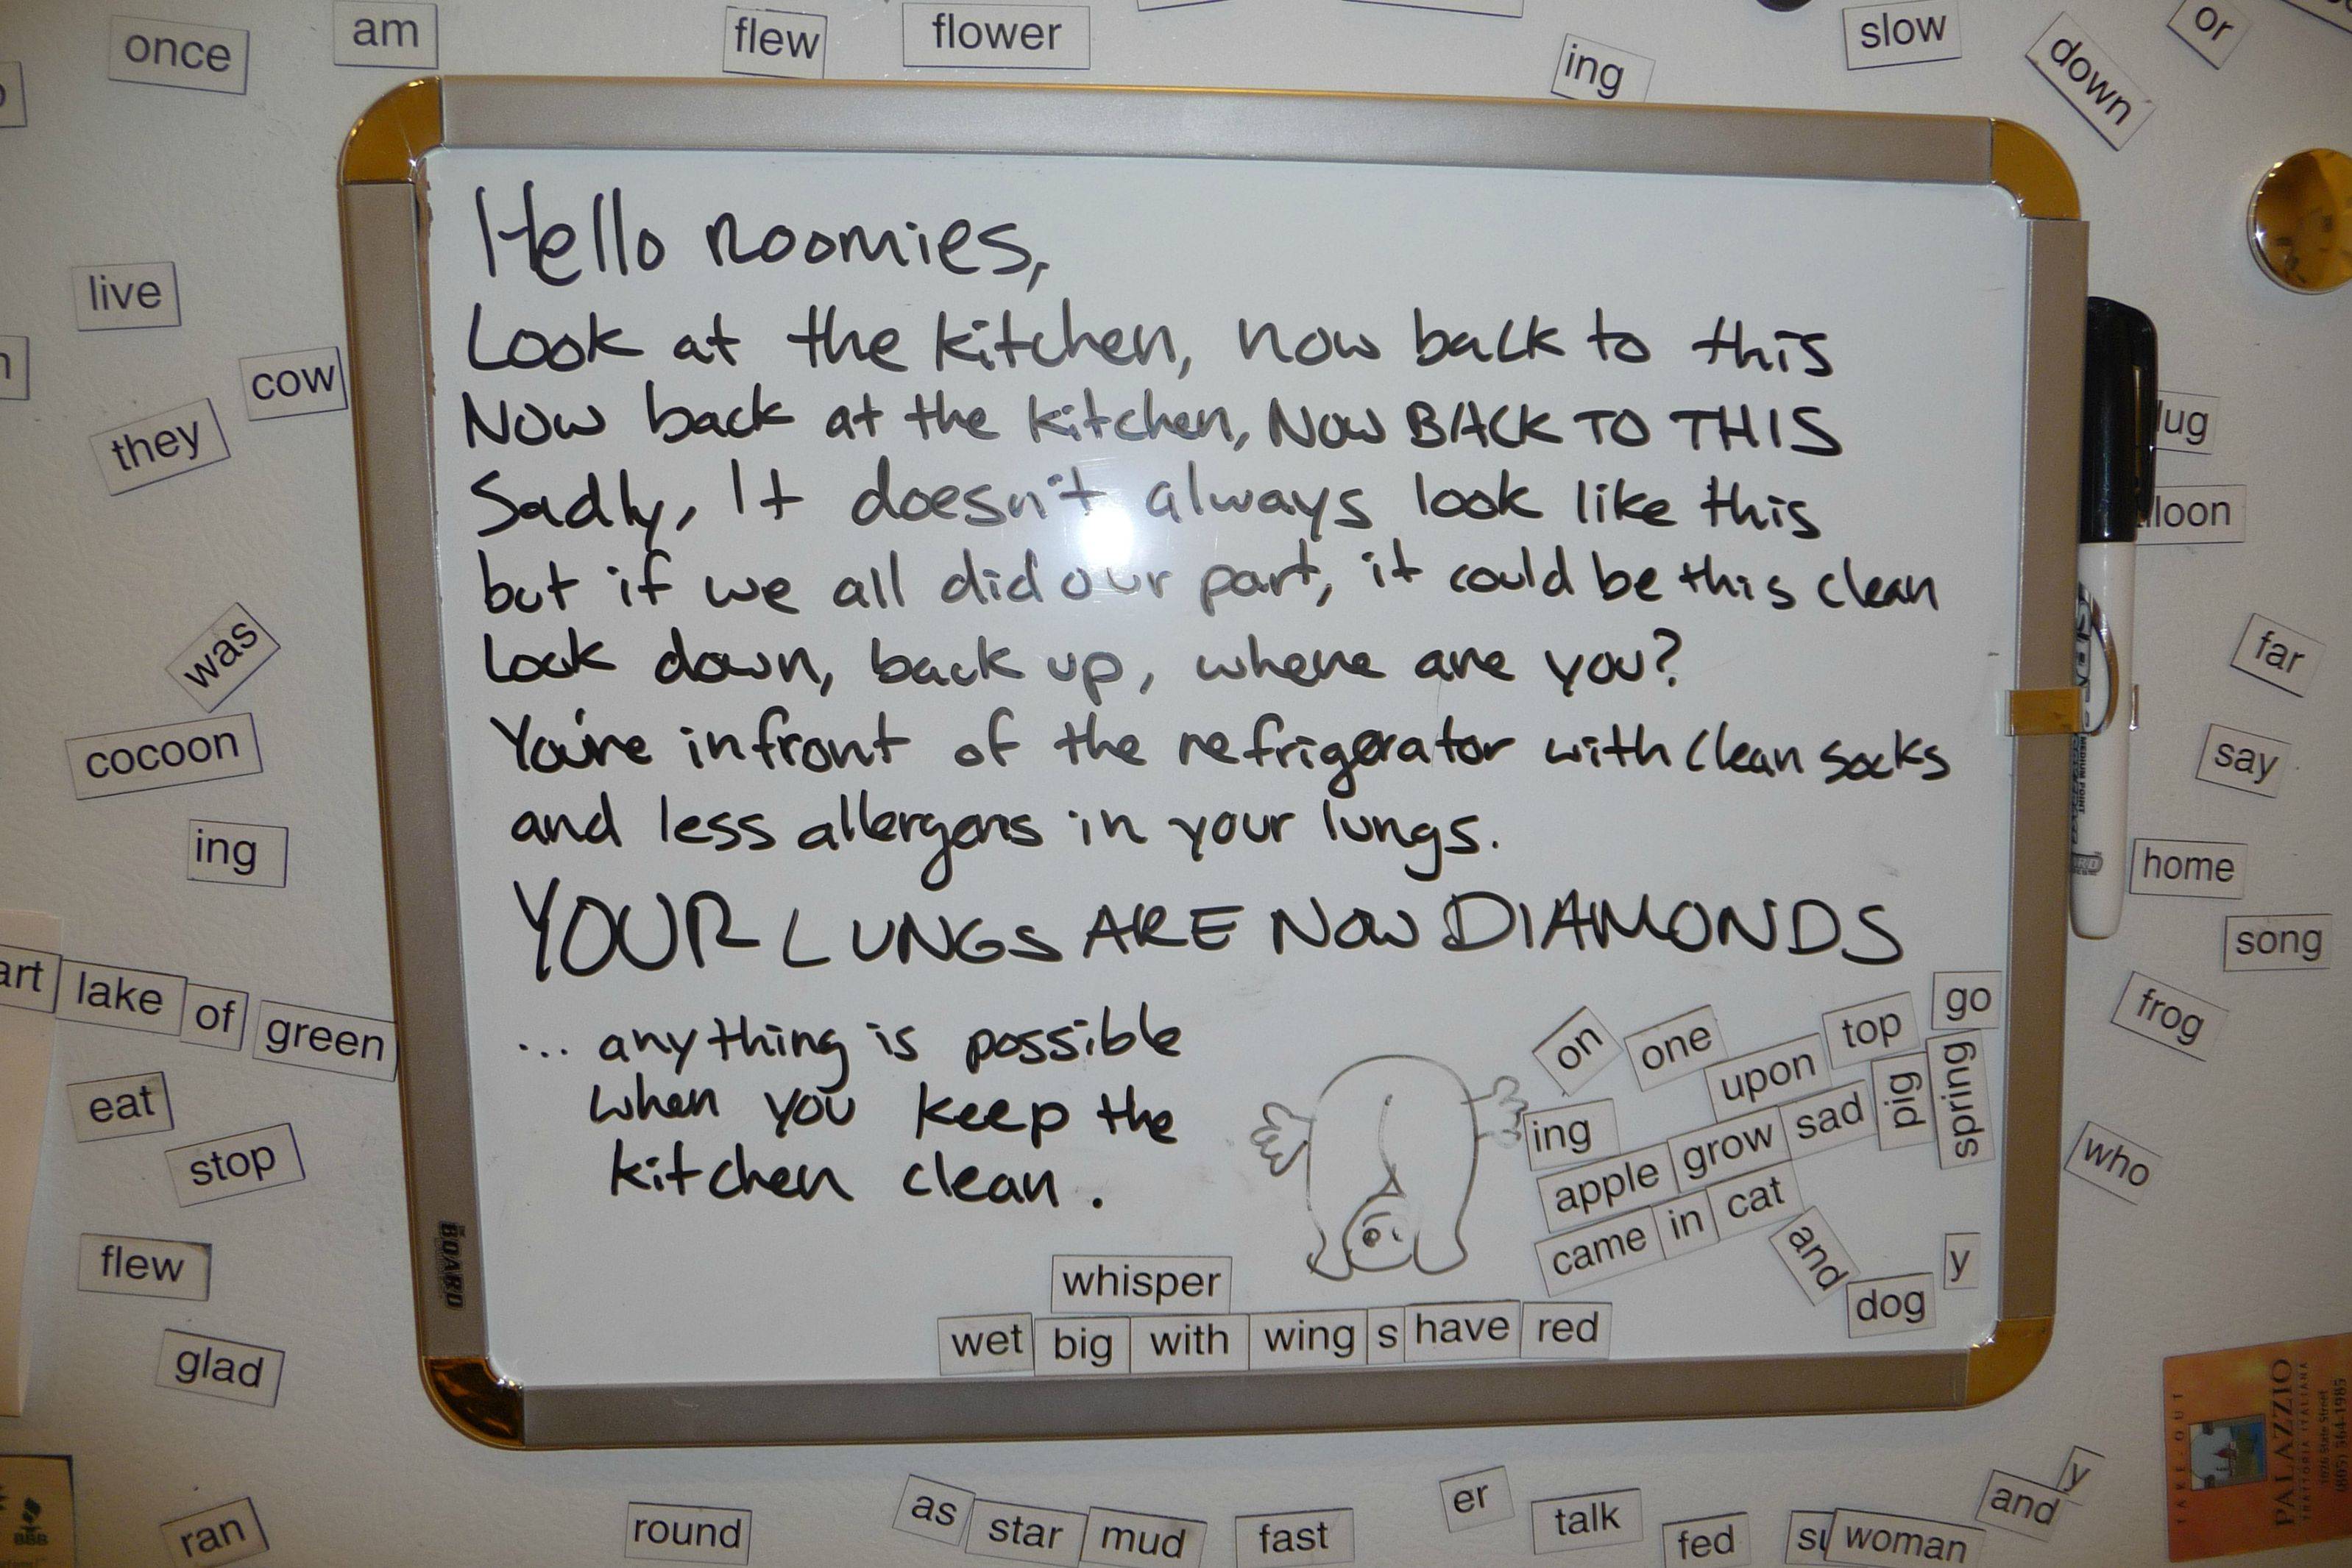 once
am
flew
flower
ing
slow
down
or
Hello Roomies,
Look at the kitchen, now back to this
Now back at the kitchen, NOW BACK TO THIS
Sadly, It doesn't always look like this
but if we all did our part, it could be this clean
Look down, back up, where are you?
You're infront of the refrigerator with clean socks
and less allergens in your lungs.
YOUR LUNGS ARE NOW DIAMONDS
... anything is possible
when you keep the
kitchen clean.
live
cow
they
was
cocoon
ing
art lake of green
eat
stop
flew
glad
ran
on one upon top go
ing
apple grow sad pig spring
came in cat
and
dog
y
whisper
wet big with wing s have red
BOARD
lug
loon
MEDIUM POINT
far
say
home
song
frog
who
round
as star mud fast
er
talk
fed
su woman
and
y
TAKE-OUT
PALAZZIO
TRATTORIA ITALIANA
1026 State Street
(805) 564-1985
BBB